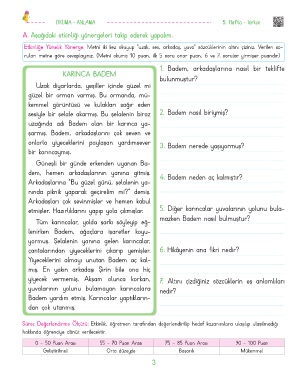 OKUMA - ANLAMA
5. Hafta - Türkçe
A. Aşağıdaki etkinliği yönergeleri takip ederek yapalım.
Etkinliğe Yönelik Yönerge: Metni iki kez okuyup "uzak, ses, arkadaş, yuva" sözcüklerinin altını çiziniz. Verilen so-
ruları metne göre cevaplayınız. (Metni okuma 10 puan, ilk 5 soru onar puan, 6 ve 7. sorular yirmişer puandır.)
KARINCA BADEM
Uzak diyarlarda, yeşiller içinde güzel mi
güzel bir orman varmış. Bu ormanda, mü-
kemmel görüntüsü ve kulakları sağır eden
sesiyle bir şelale akarmış. Bu şelalenin biraz
uzağında adı Badem olan bir karınca ya-
şarmış. Badem, arkadaşlarını çok seven ve
onlarla yiyeceklerini paylaşan yardımsever
bir karıncaymış.
Güneşli bir günde erkenden uyanan Ba-
dem, hemen arkadaşlarının yanına gitmiş.
Arkadaşlarına "Bu güzel günü, şelalenin ya-
nında piknik yaparak geçirelim mi?" demiş.
Arkadaşları çok sevinmişler ve hemen kabul
etmişler. Hazırlıklarını yapıp yola çıkmışlar.
Tüm karıncalar, yolda şarkı söyleyip eğ-
lenirken Badem, ağaçlara işaretler koyu-
yormuş. Şelalenin yanına gelen karıncalar,
çantalarından yiyeceklerini çıkarıp yemişler.
Yiyeceklerini almayı unutan Badem aç kal-
mış. En yakın arkadaşı Şirin bile ona hiç
yiyecek vermemiş. Akşam olunca korkan,
yuvalarının yolunu bulamayan karıncalara
Badem yardım etmiş. Karıncalar yaptıkların-
dan çok utanmış.
1. Badem, arkadaşlarına nasıl bir teklifte
bulunmuştur?
2. Badem nasıl biriymiş?
3. Badem nerede yaşıyormuş?
4. Badem neden aç kalmıştır?
5. Diğer karıncalar yuvalarının yolunu bula-
mazken Badem nasıl bulmuştur?
6. Hikâyenin ana fikri nedir?
7. Altını çizdiğiniz sözcüklerin eş anlamlıları
nedir?
Süreç Değerlendirme Ölçütü: Etkinlik, öğretmen tarafından değerlendirilip hedef kazanımlara ulaşılıp ulaşılmadığı
hakkında öğrenciye dönüt verilecektir.
0 - 50 Puan Arası
55 - 70 Puan Arası
75 - 85 Puan Arası
90 - 100 Puan
Geliştirilmeli
Orta düzeyde
Başarılı
Mükemmel
3